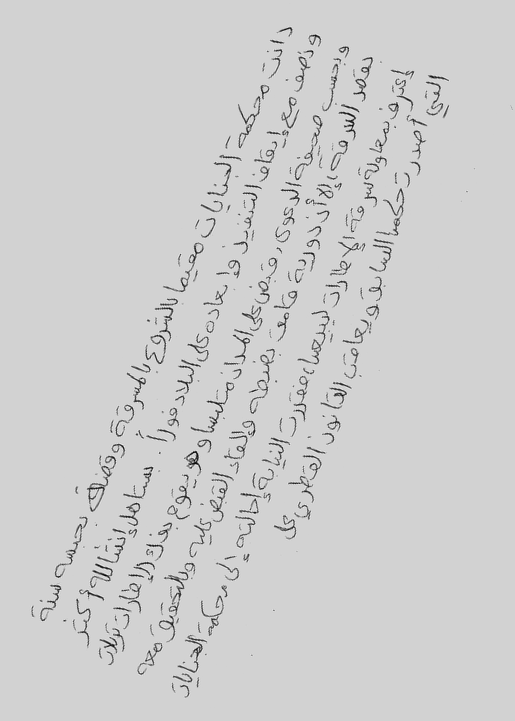 دانت محكمة الجنايات مقيما بالشروع بالسرقة وقضت بحبسه سنة
ونصف مع إيقاف التنفيذ وابعاده على البلاد فوراً. ستاهل إنشالله أكثر
وبحسب صحيفة الدعوى، قبض على المدان متلبسا وهو يقوم بفك الإطارات
بقصد السرقة، إلا أن دورية قامت بضبطه وإلقاء القبض عليه وبالتحقيق معه
أعترف بمحاولة سرقة الإطارات لبيعها، فقررت النيابة إحالته إلى محكمة الجنايات
التي أصدرت حكمها السابق ويعاقب القانون القطري على